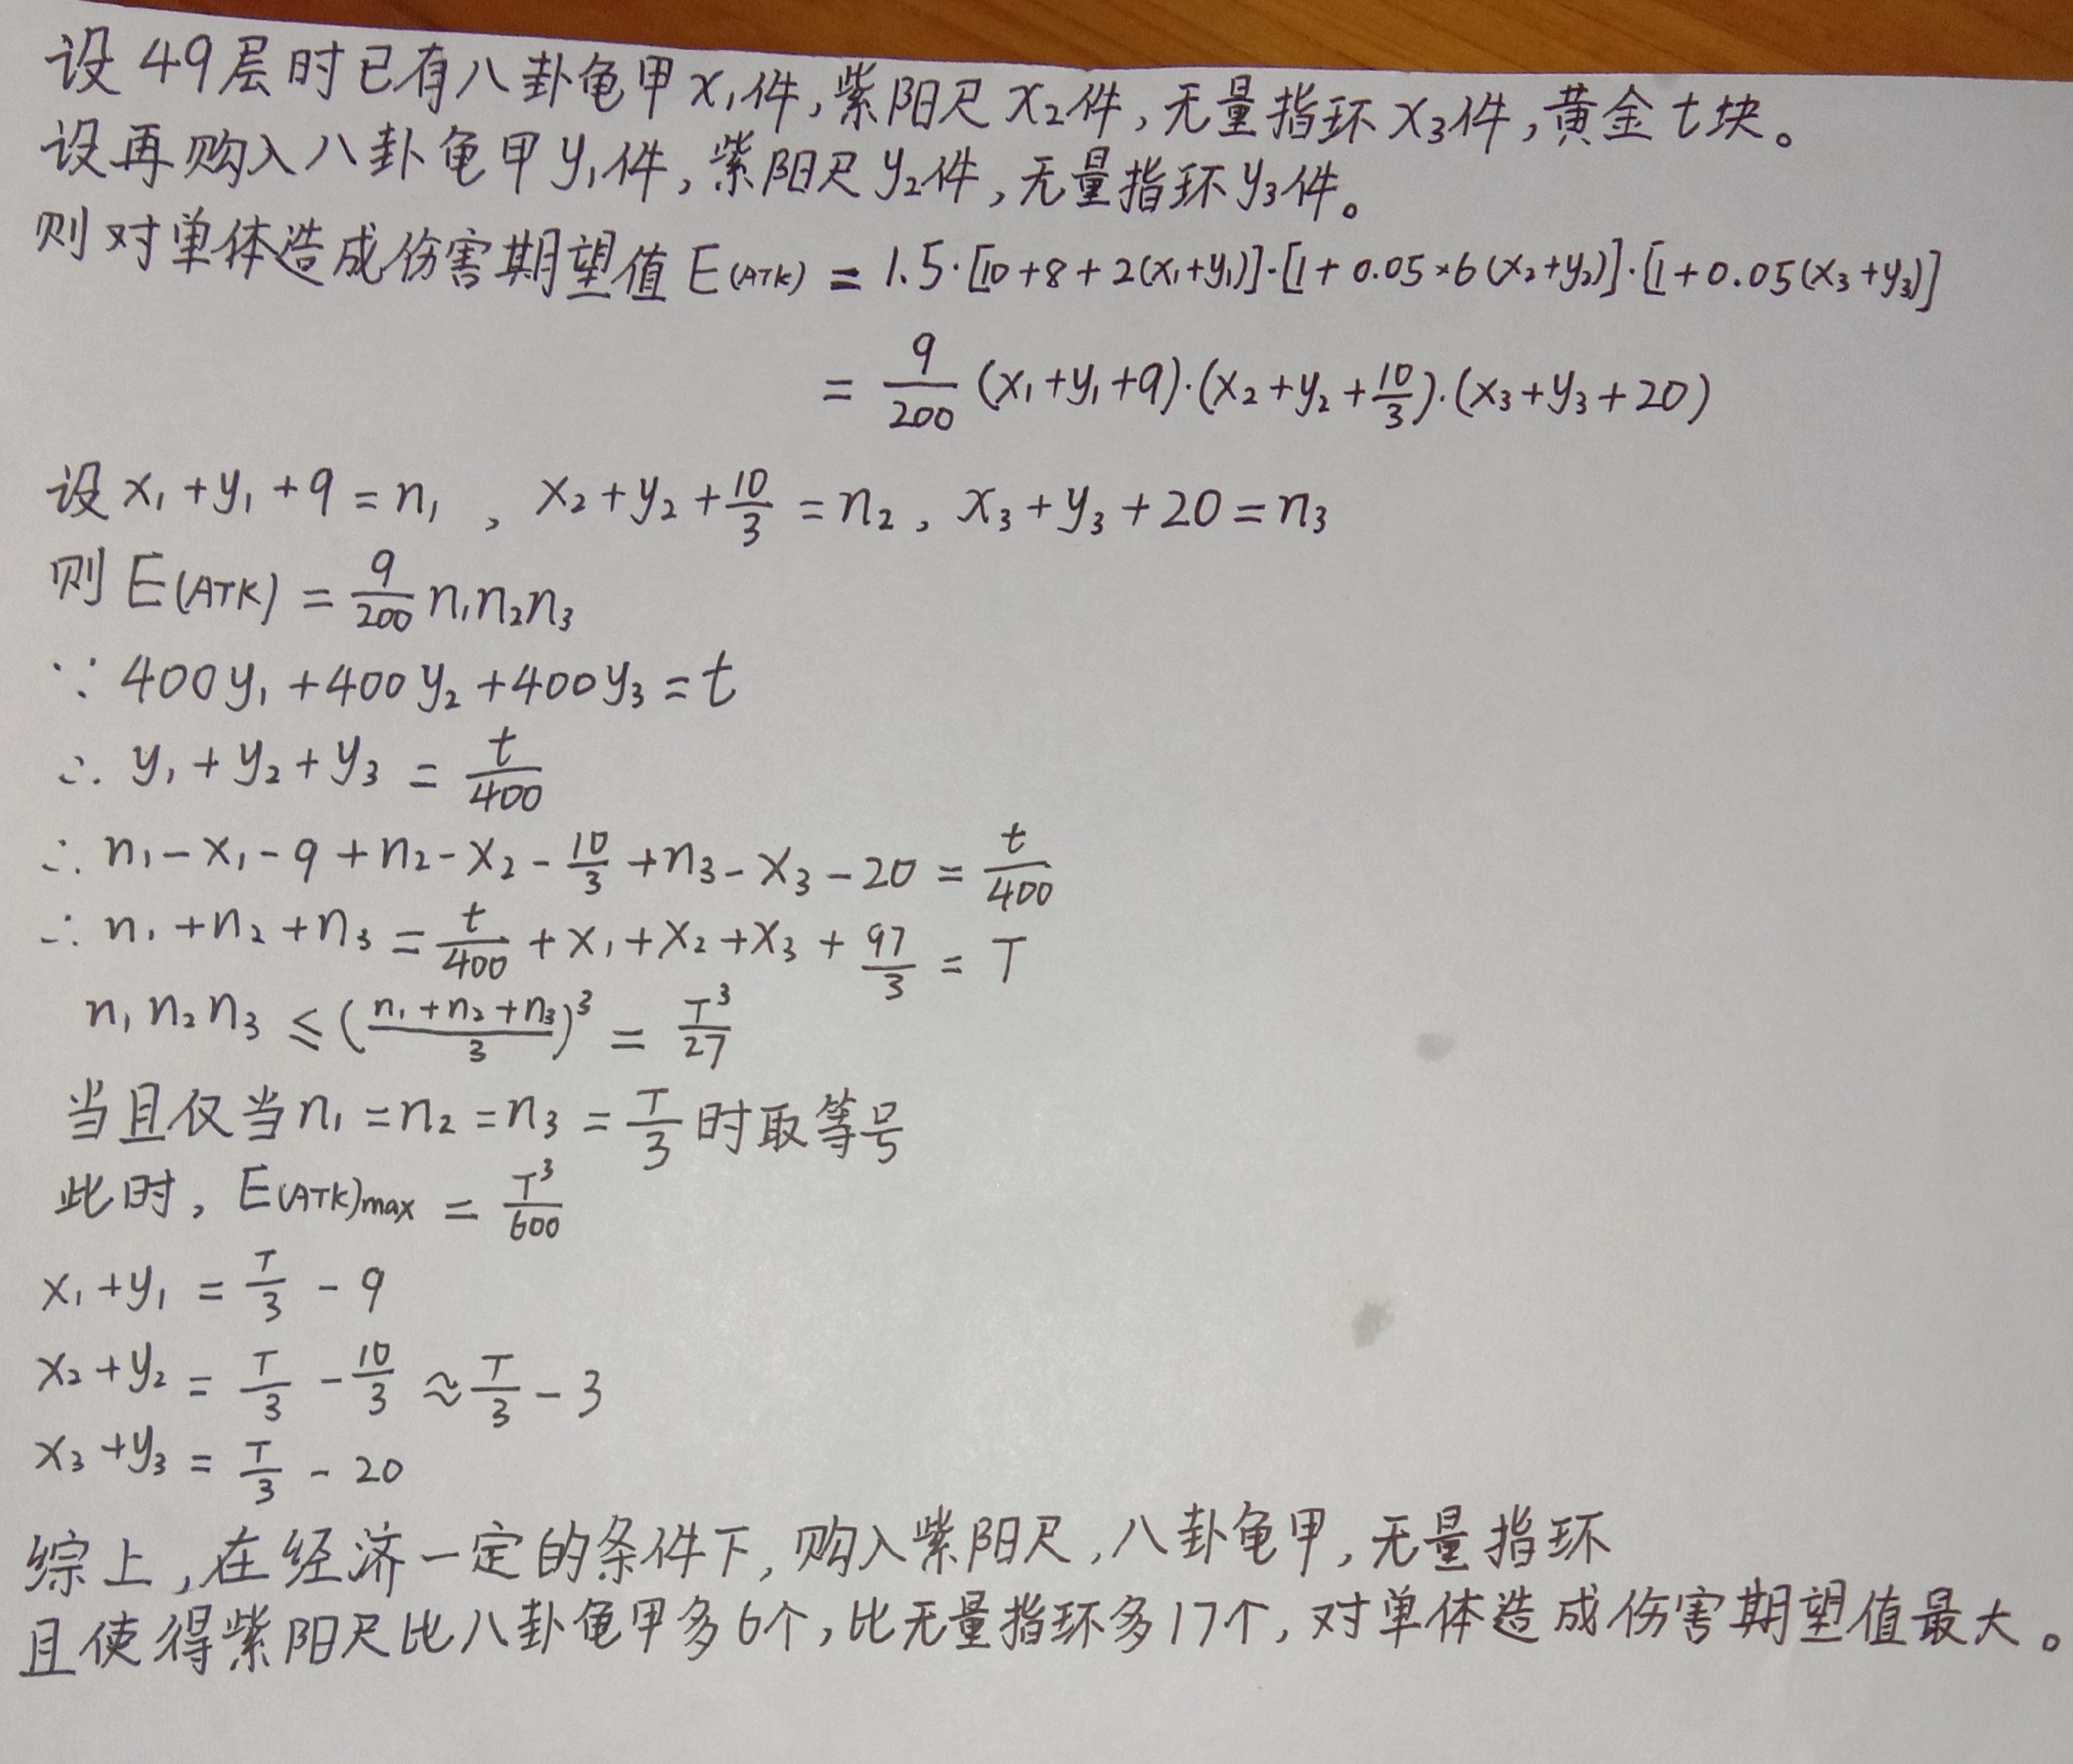 设49层时已有八卦龟甲x₁件,紫阳尺x₂件,无量指环x₃件,黄金t块。
设再购入八卦龟甲y₁件,紫阳尺y₂件,无量指环y₃件。
则对单体造成伤害期望值E(ATK) = 1.5·[10+8+2(x₁+y₁)]·[1+0.05×6(x₂+y₂)]·[1+0.05(x₃+y₃)]
= 9/200 (x₁+y₁+9)·(x₂+y₂+10/3)·(x₃+y₃+20)
设x₁+y₁+9=n₁, x₂+y₂+10/3=n₂, x₃+y₃+20=n₃
则E(ATK) = 9/200 n₁n₂n₃
∵ 400y₁+400y₂+400y₃=t
∴ y₁+y₂+y₃ = t/400
∴ n₁-x₁-9+n₂-x₂-10/3+n₃-x₃-20 = t/400
∴ n₁+n₂+n₃ = t/400+x₁+x₂+x₃+97/3 = T
n₁n₂n₃ ≤ ((n₁+n₂+n₃)/3)³ = T³/27
当且仅当n₁=n₂=n₃=T/3时取等号
此时, E(ATK)max = T³/600
x₁+y₁ = T/3 - 9
x₂+y₂ = T/3 - 10/3 ≈ T/3 - 3
x₃+y₃ = T/3 - 20
综上,在经济一定的条件下,购入紫阳尺,八卦龟甲,无量指环
且使得紫阳尺比八卦龟甲多6个,比无量指环多17个,对单体造成伤害期望值最大。